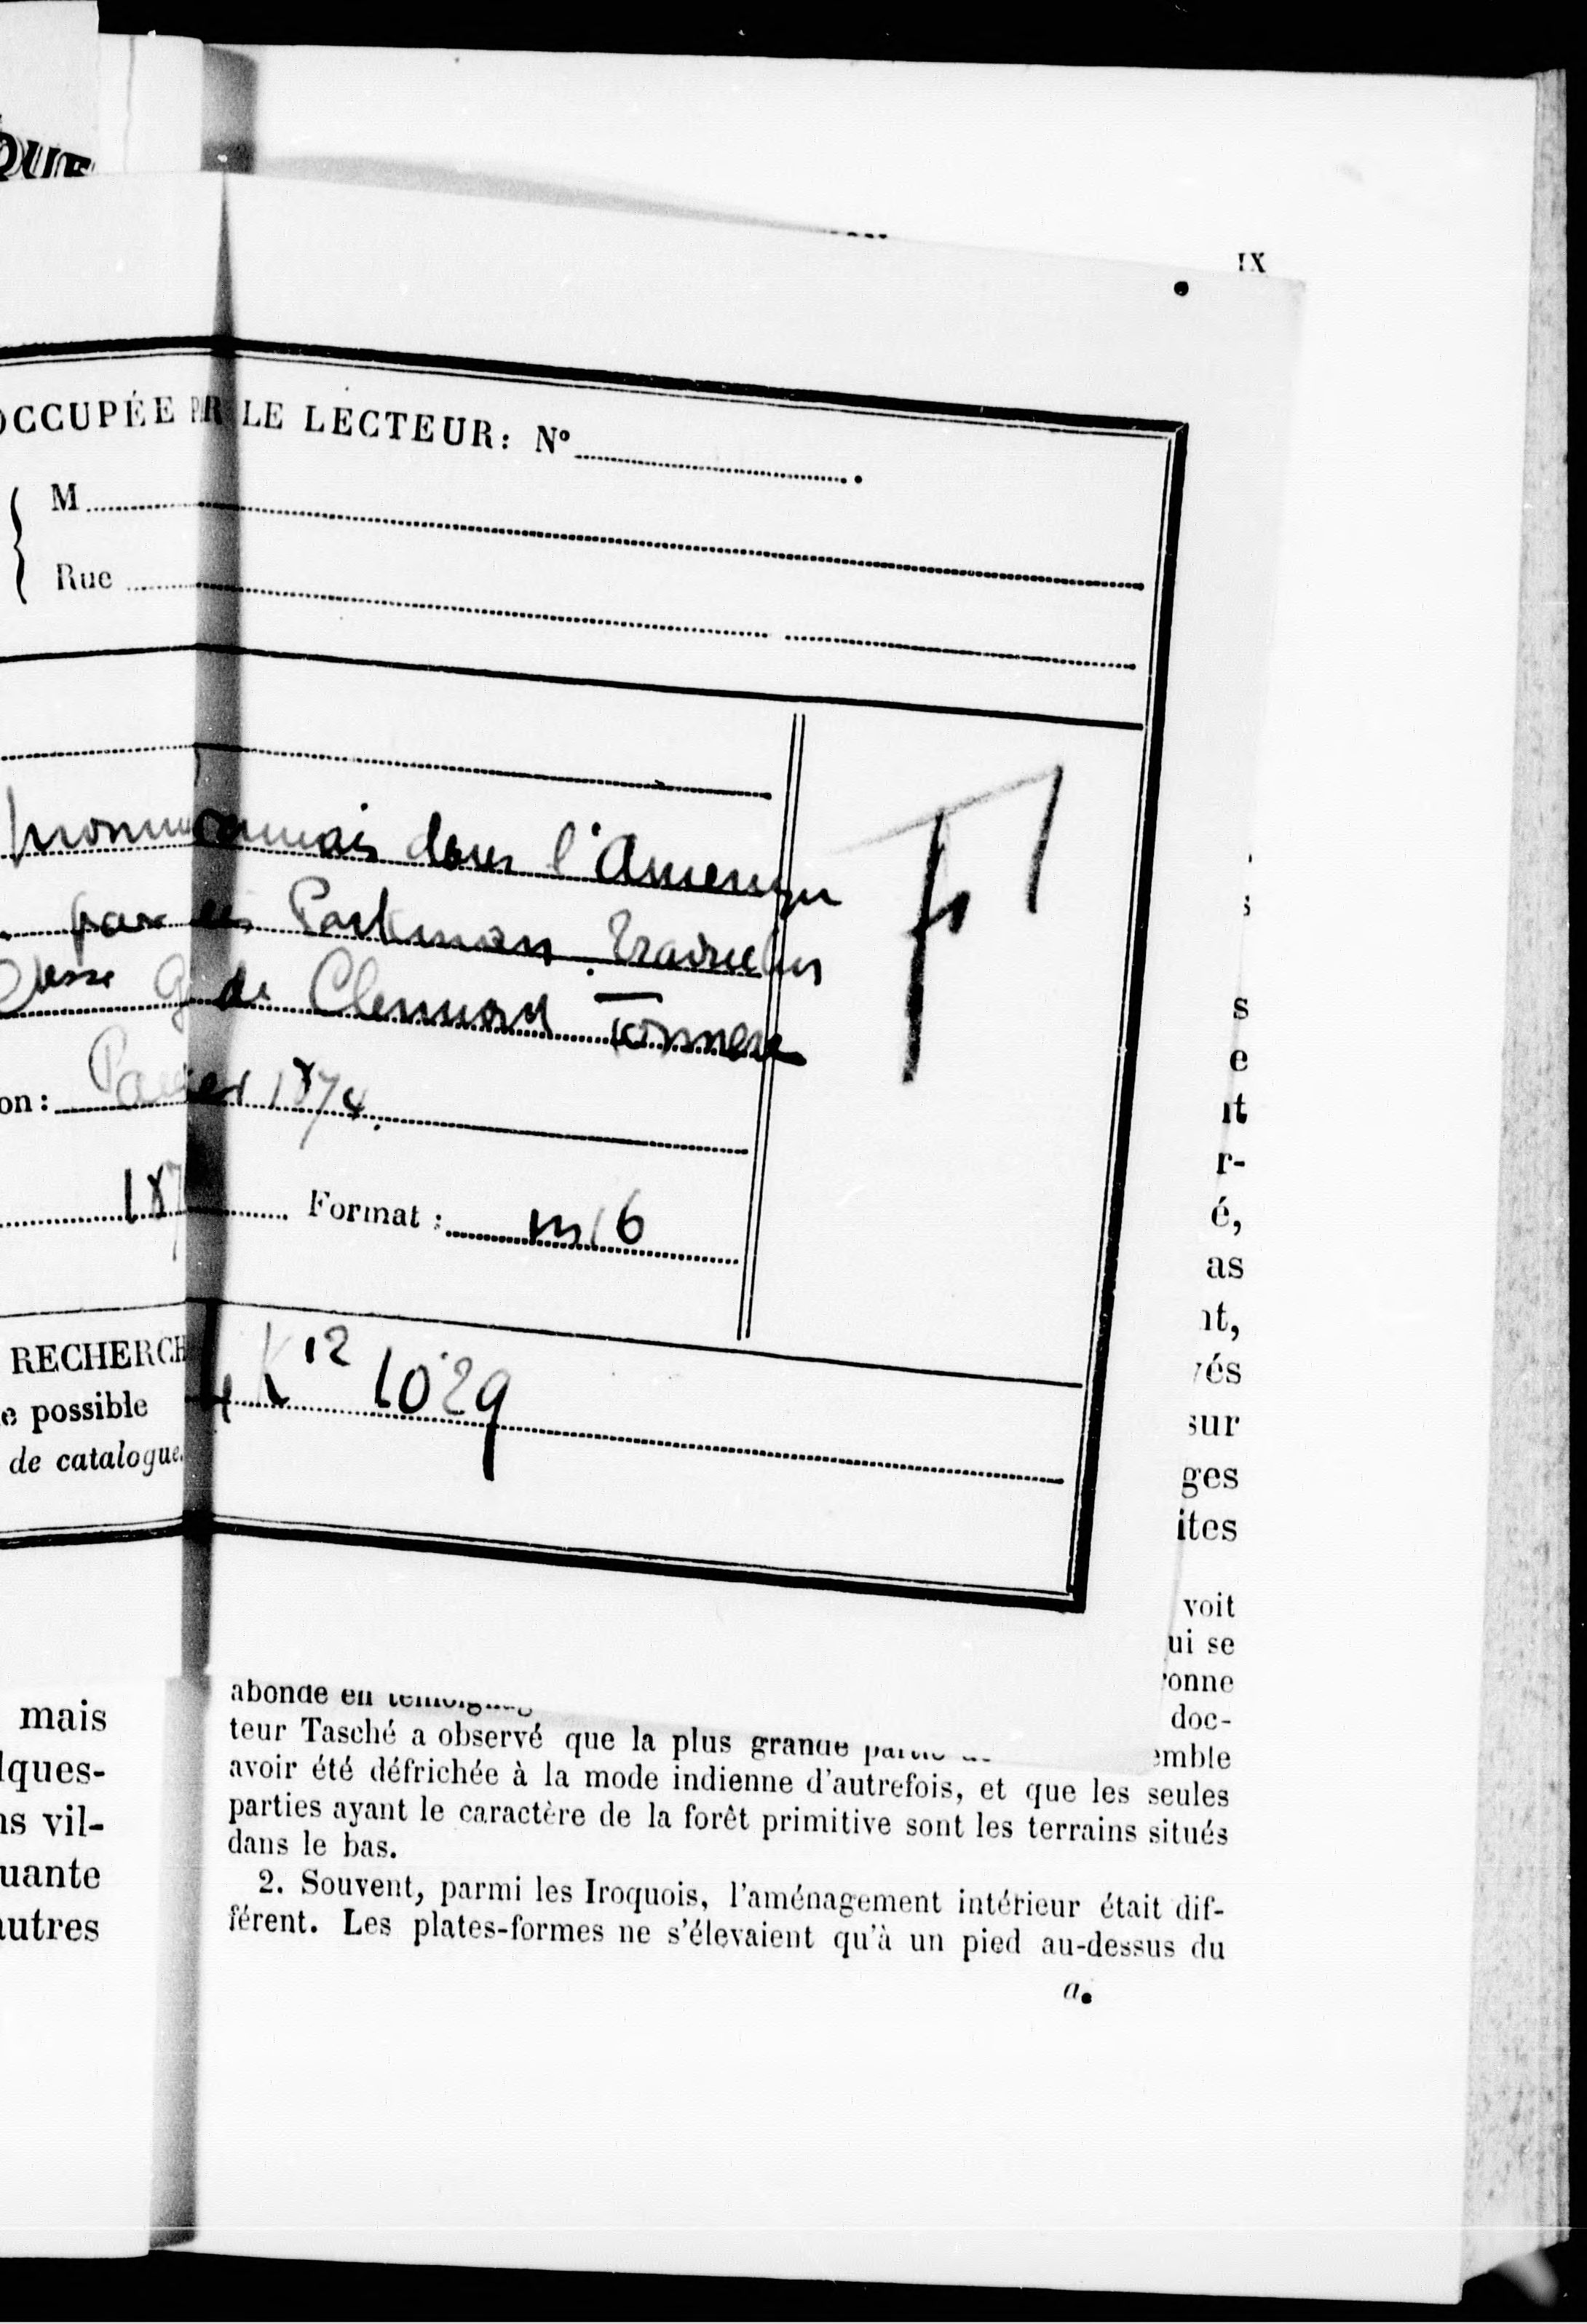 QUE
IX
OCCUPÉE PAR LE LECTEUR: N°
M
Rue
dans l'
par Parkman
de Clermont Tonnerre
on: Paris 1874.
187 Format: in 16
RECHERCH
e possible
de catalogue.
4 K 12 1029
s
s
e
nt
r-
é,
as
nt,
vés
sur
ges
ites
voit
ui se
onne
doc-
emble
mais
lques-
ns vil-
uante
autres
abonde en témoignag
teur Tasché a observé que la plus grande partie
avoir été défrichée à la mode indienne d'autrefois, et que les seules
parties ayant le caractère de la forêt primitive sont les terrains situés
dans le bas.
2. Souvent, parmi les Iroquois, l'aménagement intérieur était dif-
férent. Les plates-formes ne s'élevaient qu'à un pied au-dessus du
a.